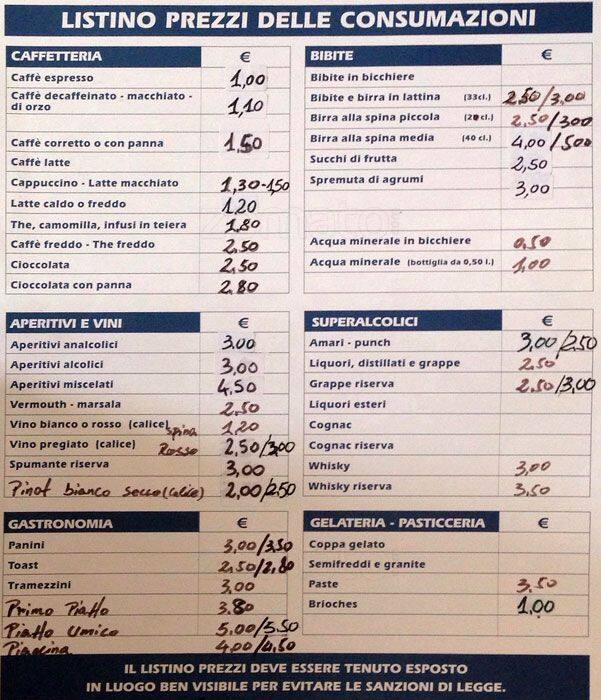 LISTINO PREZZI DELLE CONSUMAZIONI
CAFFETTERIA €
Caffè espresso 1,00
Caffè decaffeinato - macchiato -
di orzo 1,10
Caffè corretto o con panna 1,50
Caffè latte
Cappuccino - Latte macchiato 1,30-1,50
Latte caldo o freddo 1,20
The, camomilla, infusi in teiera 1,80
Caffè freddo - The freddo 2,50
Cioccolata 2,50
Cioccolata con panna 2,80
BIBITE €
Bibite in bicchiere
Bibite e birra in lattina (33cl.) 2,50/3,00
Birra alla spina piccola (20 cl.) 2,50/3,00
Birra alla spina media (40 cl.) 4,00/500
Succhi di frutta 2,50
Spremuta di agrumi 3,00
Acqua minerale in bicchiere 0,50
Acqua minerale (bottiglia da 0,50 l.) 1,00
APERITIVI E VINI €
Aperitivi analcolici 3,00
Aperitivi alcolici 3,00
Aperitivi miscelati 4,50
Vermouth - marsala 2,50
Vino bianco o rosso (calice) spina 1,20
Vino pregiato (calice) Rosso 2,50/3,00
Spumante riserva 3,00
Pinot bianco secco (calice) 2,00/2,50
SUPERALCOLICI €
Amari - punch 3,00/2,50
Liquori, distillati e grappe 2,50
Grappe riserva 2,50/3,00
Liquori esteri
Cognac
Cognac riserva
Whisky 3,00
Whisky riserva 3,50
GASTRONOMIA €
Panini 3,00/3,50
Toast 2,50/2,80
Tramezzini 3,00
Primo Piatto 3,80
Piatto Unico 5,00/5,50
Piadina 4,00/4,50
GELATERIA - PASTICCERIA €
Coppa gelato
Semifreddi e granite
Paste 3,50
Brioches 1,00
IL LISTINO PREZZI DEVE ESSERE TENUTO ESPOSTO
IN LUOGO BEN VISIBILE PER EVITARE LE SANZIONI DI LEGGE.